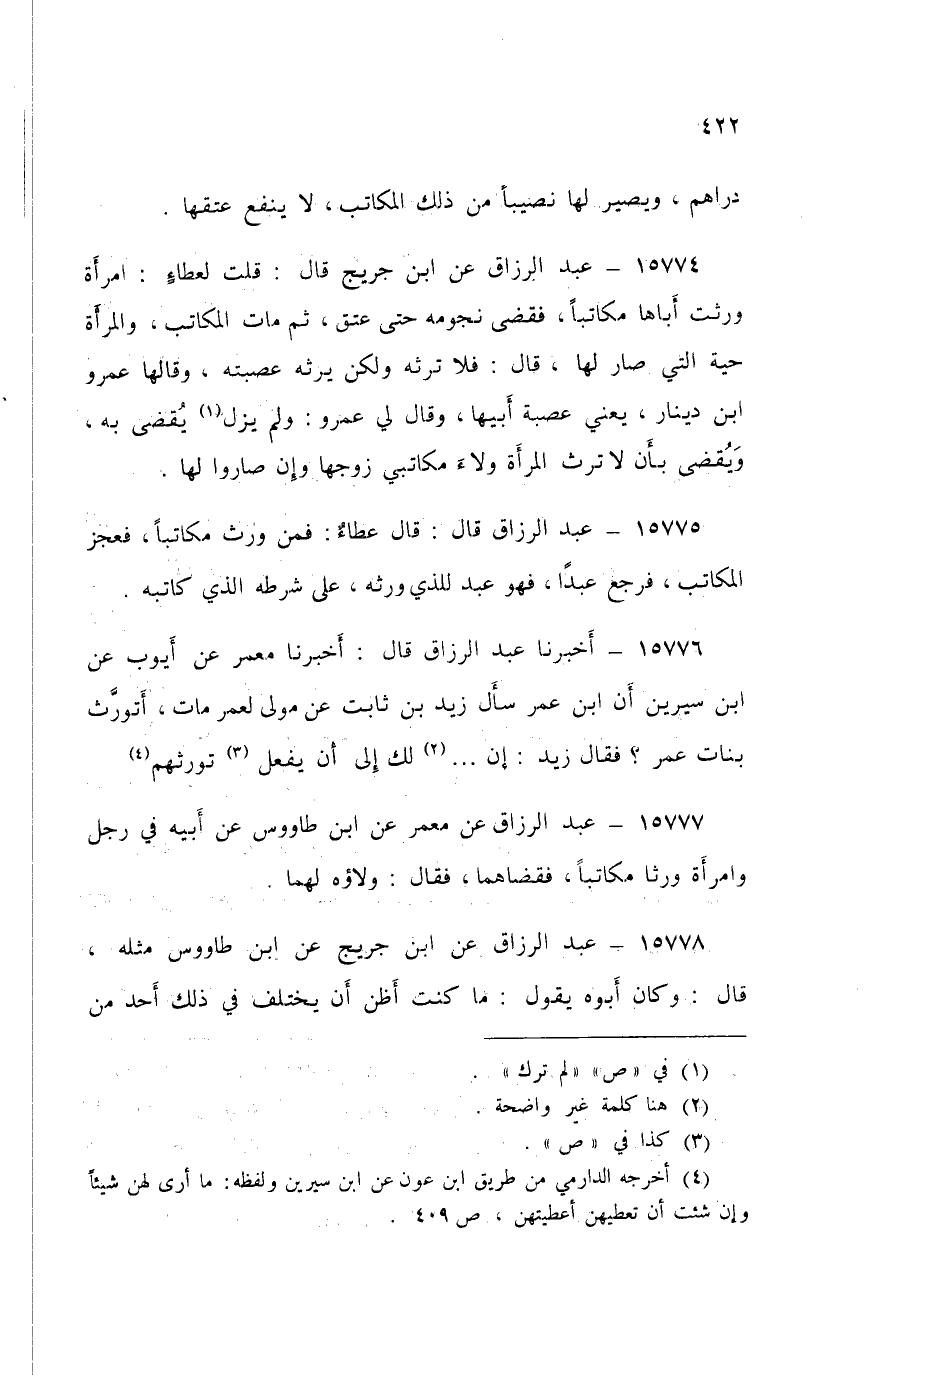 ٤٢٢
دراهم ، ويصير لها نصيباً من ذلك المكاتب ، لا ينفع عتقها .
١٥٧٧٤ – عبد الرزاق عن ابن جريج قال : قلت لعطاءٍ : امرأَة
ورثت أَباها مكاتباً ، فقضى نجومه حتى عتق ، ثم مات المكاتب ، والمرأَة
حية التي صار لها ، قال : فلا ترثه ولكن يرثه عصبته ، وقالها عمرو
ابن دينار ، يعني عصبة أَبيها ، وقال لي عمرو : ولم يزل(١) يُقضى به ،
وَيُقضى بأَن لا ترث المرأَة ولاءَ مكاتبي زوجها وإن صاروا لها .
١٥٧٧٥ – عبد الرزاق قال : قال عطاءٌ : فمن ورث مكاتباً ، فعجز
المكاتب ، فرجع عبدًا ، فهو عبد للذي ورثه ، على شرطه الذي كاتبه .
١٥٧٧٦ – أَخبرنا عبد الرزاق قال : أَخبرنا معمر عن أَيوب عن
ابن سيرين أَن ابن عمر سأَل زيد بن ثابت عن مولى لعمر مات ، أَتورَّث
بنات عمر ؟ فقال زيد : إن ... (٢) لك إلى أن يفعل (٣) تورثهم(٤)
١٥٧٧٧ – عبد الرزاق عن معمر عن ابن طاووس عن أَبيه في رجل
وامرأَة ورثا مكاتباً ، فقضاهما ، فقال : ولاؤه لهما .
١٥٧٧٨ – عبد الرزاق عن ابن جريج عن ابن طاووس مثله ،
قال : وكان أَبوه يقول : ما كنت أَظن أَن يختلف في ذلك أَحد من
(١) في «ص» «لم ترك» .
(٢) هنا كلمة غير واضحة .
(٣) كذا في «ص» .
(٤) أخرجه الدارمي من طريق ابن عون عن ابن سيرين ولفظه: ما أرى لهن شيئاً
وإن شئت أن تعطيهن أعطيتهن ، ص ٤٠٩ .